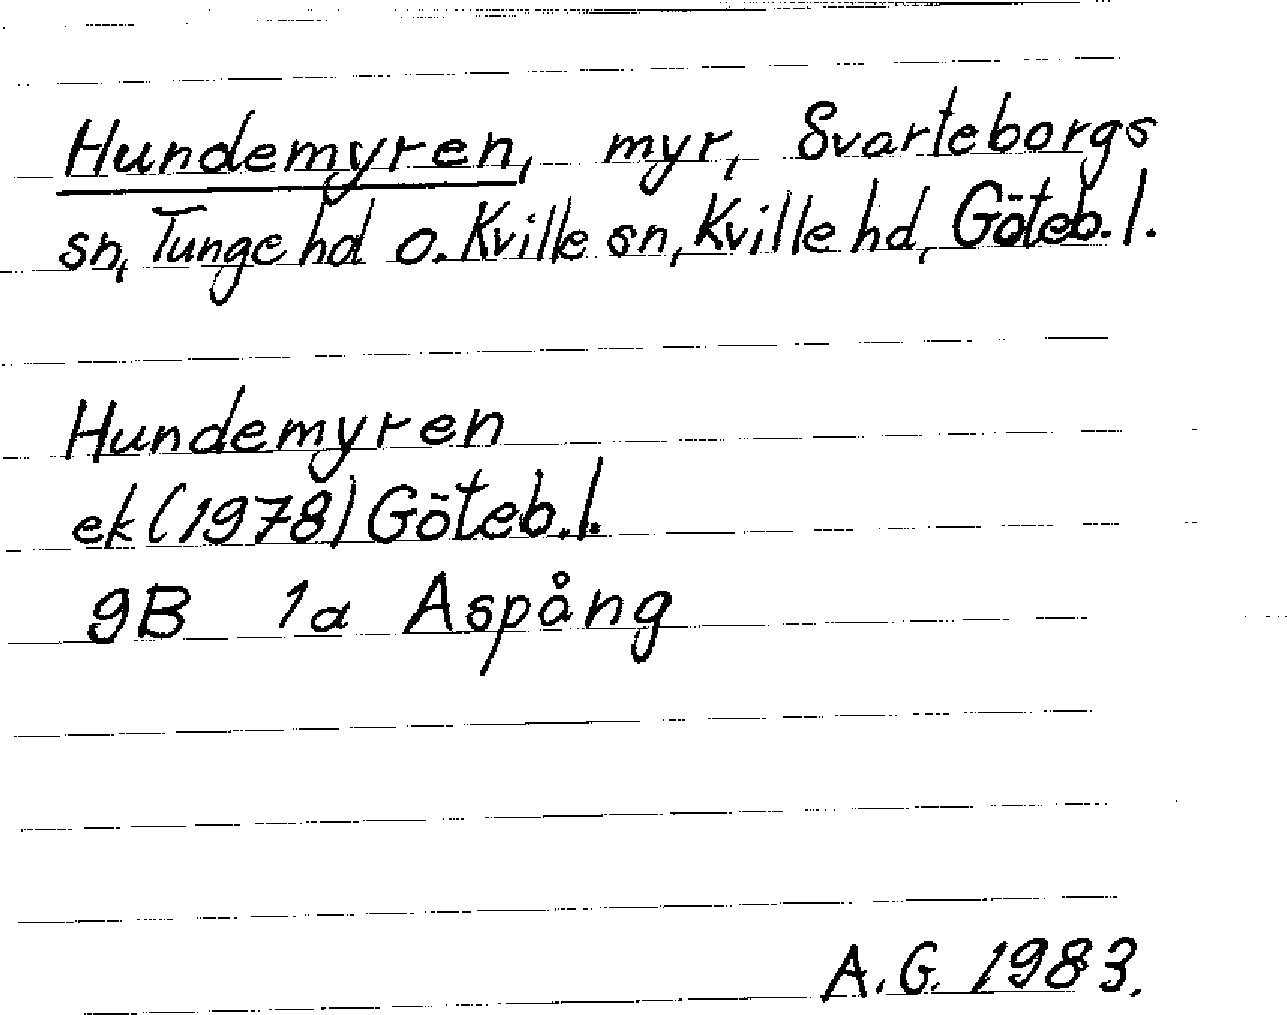 Hundemyren, myr, Svarteborgs
sn, Tunge hd o. Kville sn, Kville hd, Göteb. l.
Hundemyren
ek (1978) Göteb. l.
9B 1a Aspång
A. G. 1983.